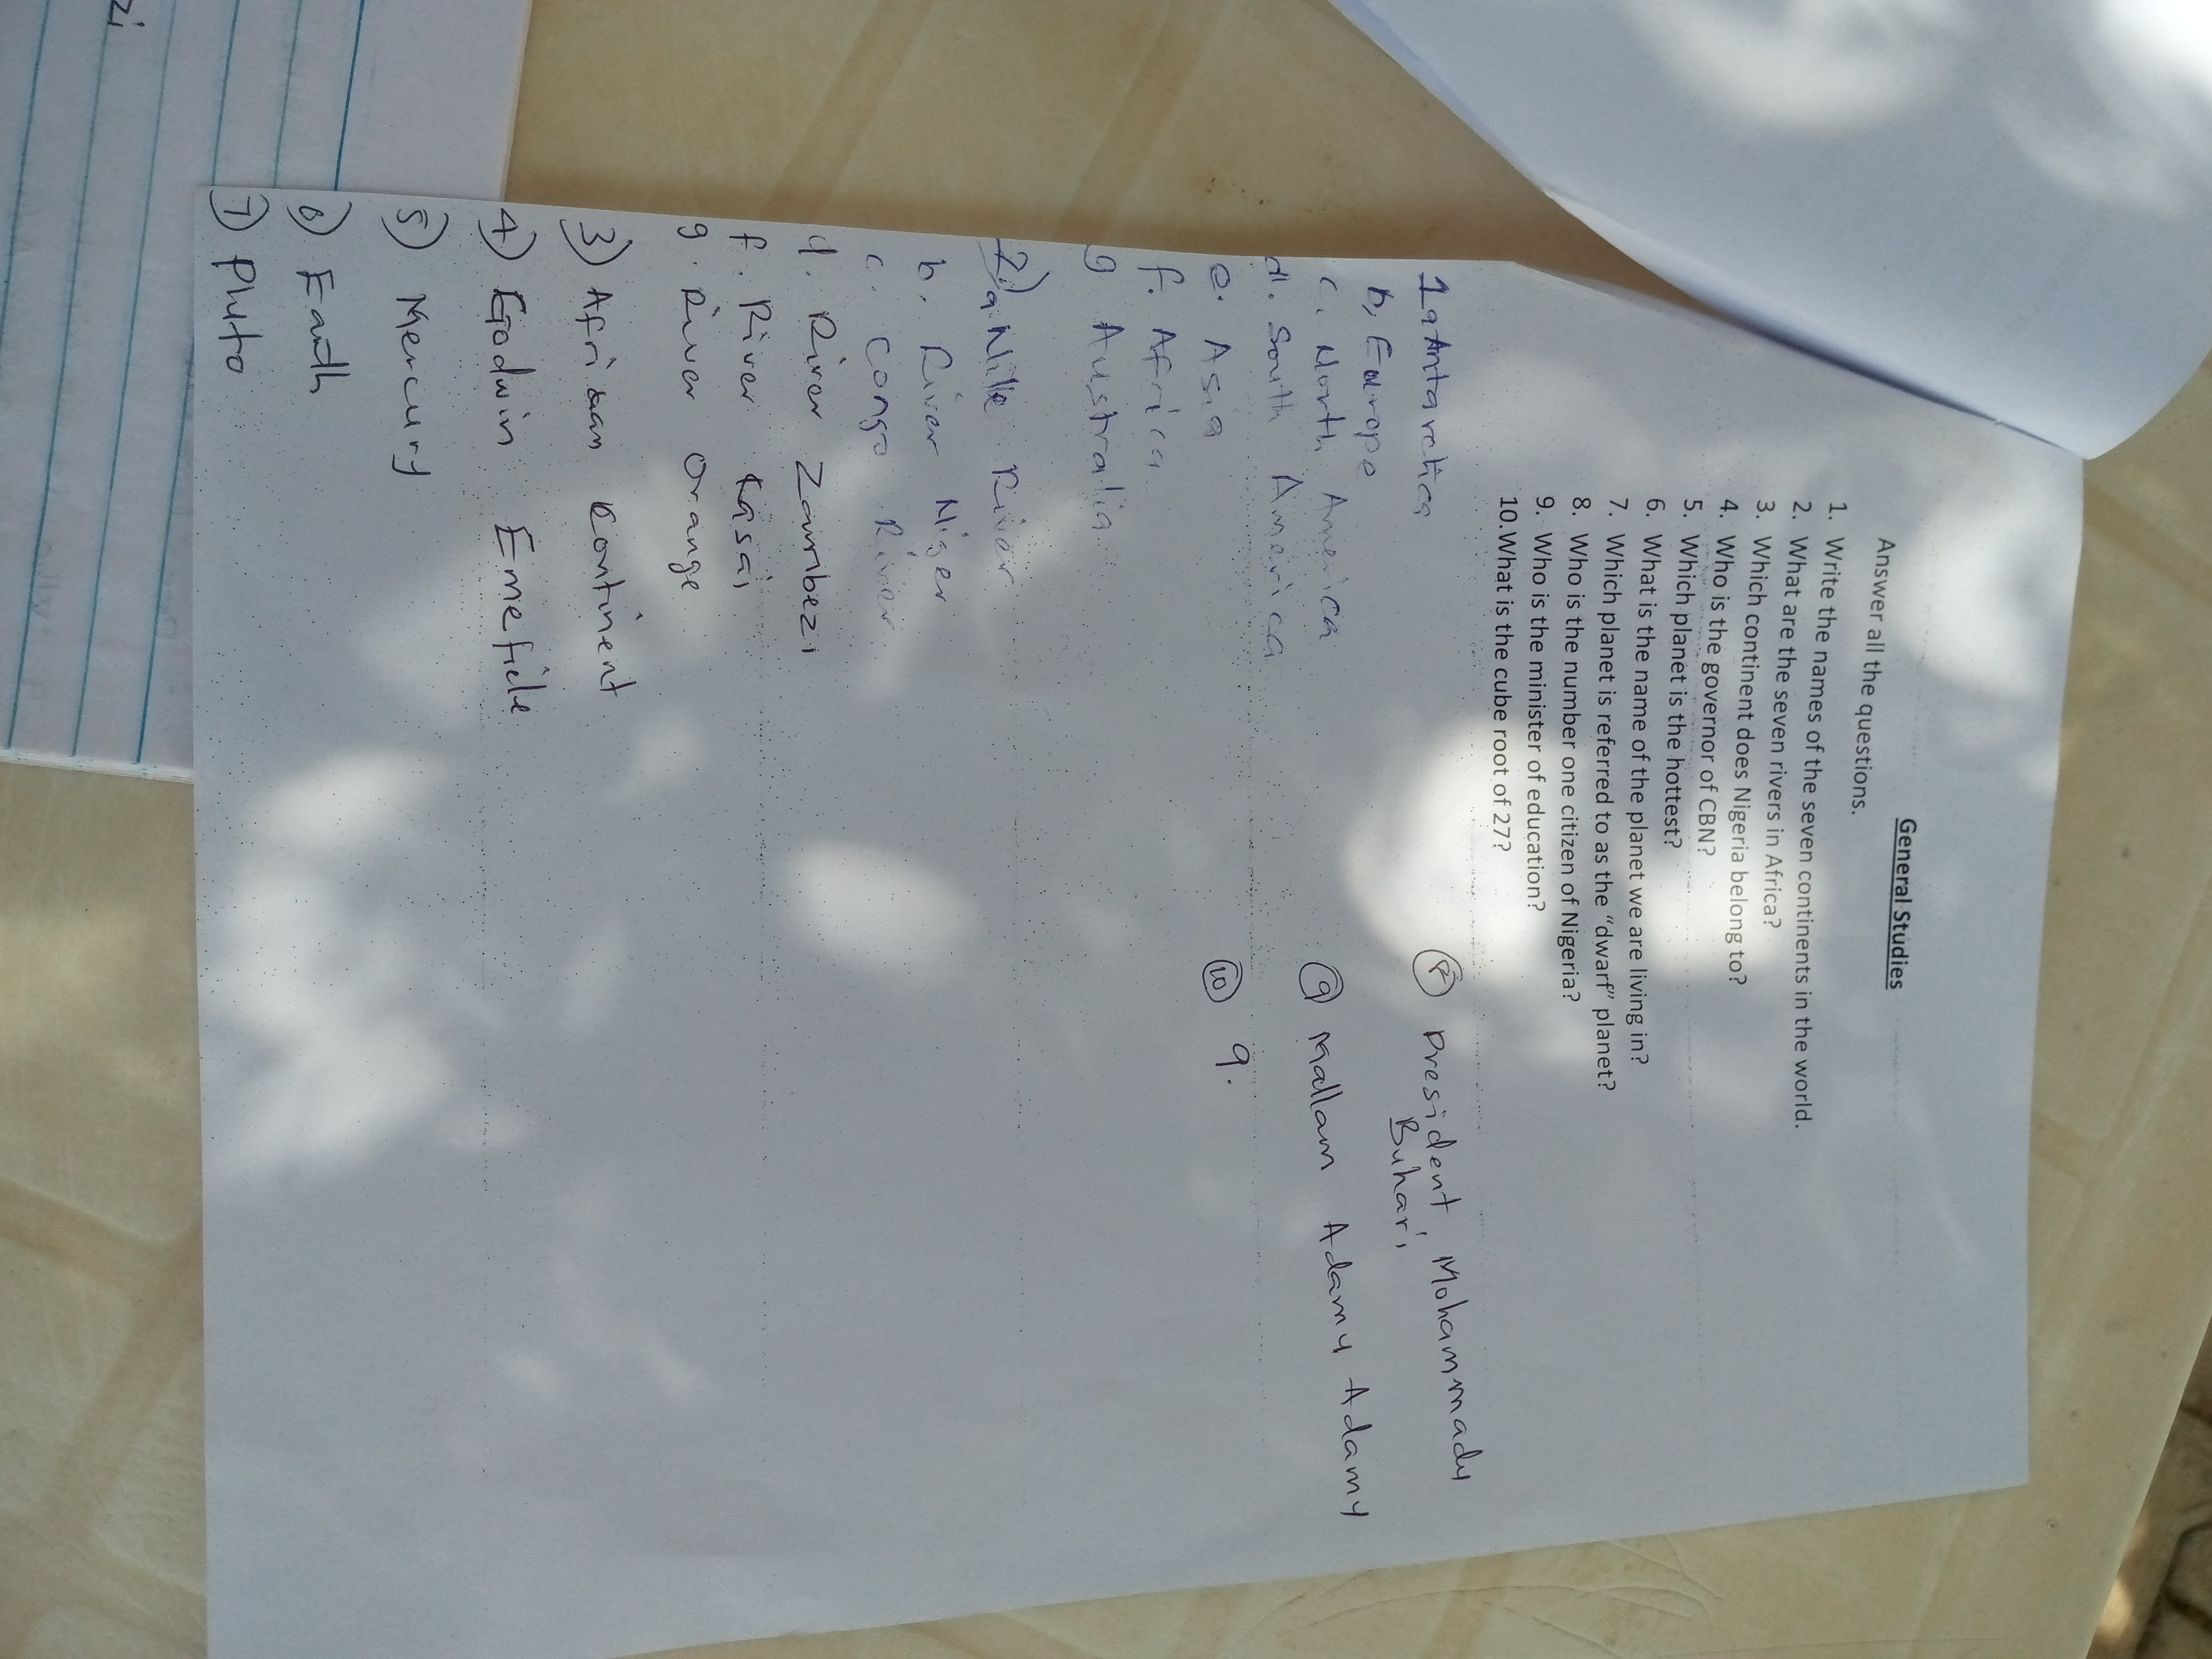 General Studies
Answer all the questions.
1. Write the names of the seven continents in the world.
2. What are the seven rivers in Africa?
3. Which continent does Nigeria belong to?
4. Who is the governor of CBN?
5. Which planet is the hottest?
6. What is the name of the planet we are living in?
7. Which planet is referred to as the "dwarf" planet?
8. Who is the number one citizen of Nigeria?
9. Who is the minister of education?
10. What is the cube root of 27?
1a Antarctica
b, Europe
c. North America
d. South America
e. Asia
f. Africa
g Australia
2) a. Nille River
b. River Niger
c. Congo River
d. River Zambezi
f. River Kasai
g. River Orange
3) African Continent
4) Godwin Emefiele
5) Mercury
6) Earth
7) Pluto
8 President Mohammadu
Buhari
9 Mallam Adamu Adamu
10 9.
zi